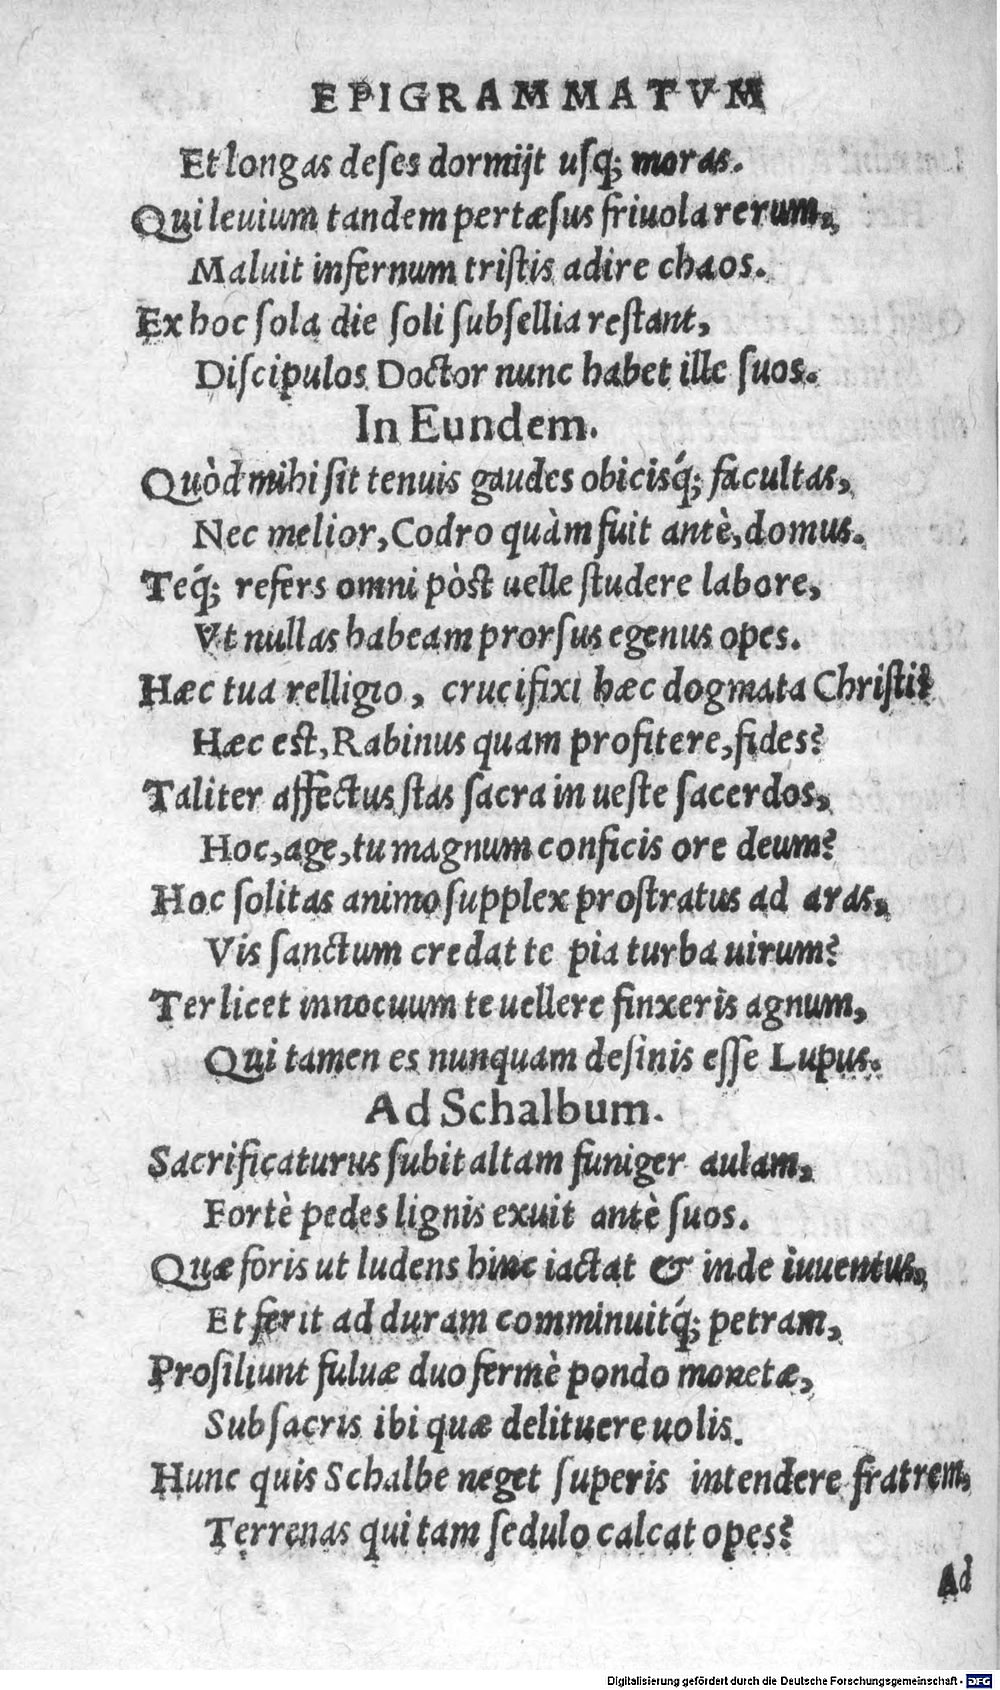 EPIGRAMMATVM
Et longas deſes dormijt uſq; moras.
Qui leuium tandem pertæſus friuola rerum,
Maluit infernum triſtis adire chaos.
Ex hoc ſola die ſoli ſubſellia reſtant,
Diſcipulos Doctor nunc habet ille ſuos.
In Eundem.
Quòd mihi ſit tenuis gaudes obicisq́; facultas,
Nec melior, Codro quàm fuit antè, domus.
Teq́; refers omni pòſt uelle ſtudere labore,
Vt nullas habeam prorſus egenus opes.
Hæc tua relligio, crucifixi hæc dogmata Chriſti?
Hæc eſt, Rabinus quam profitere, fides?
Taliter affectus ſtas ſacra in ueſte ſacerdos,
Hoc, age, tu magnum conficis ore deum?
Hoc ſolitas animo ſupplex proſtratus ad aras,
Vis ſanctum credat te pia turba uirum?
Ter licet innocuum te uellere finxeris agnum,
Qui tamen es nunquam deſinis eſſe Lupus.
Ad Schalbum.
Sacrificaturus ſubit altam funiger aulam,
Fortè pedes lignis exuit antè ſuos.
Quæ foris ut ludens hinc iactat & inde iuuentus,
Et ferit ad duram comminuitq́; petram,
Proſiliunt fuluæ duo fermè pondo monetæ,
Sub ſacris ibi quæ delituere uolis.
Hunc quis Schalbe neget ſuperis intendere fratrem,
Terrenas qui tam ſedulo calcat opes?
Ad
Digitalisierung gefördert durch die Deutsche Forschungsgemeinschaft - DFG